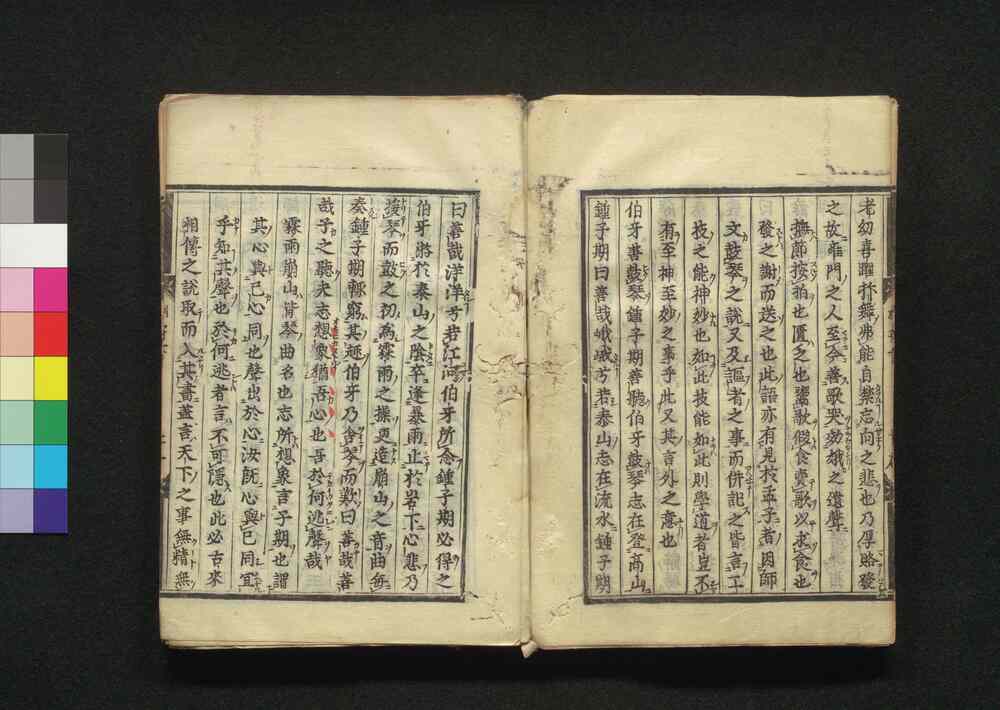 老幼喜躍抃舞弗能自禁忘向之悲也乃厚賂發
之故雍門之人至今善歌哭効娥之遺聲
撫節按拍也匱乏也鬻歌假食賣歌以求食也
發之謝而送之也此語亦有見於孟子者因師
文鼓琴之說又及謳者之事而併記之皆言工
技之能神妙也如此技能如此則學道者豈不
有至神至妙之事乎此又其言外之意也
伯牙善鼓琴鍾子期善聽伯牙鼓琴志在登高山
鍾子期曰善哉峨峨兮若泰山志在流水鍾子期
曰善哉洋洋兮若江河伯牙所念鍾子期必得之
伯牙游於泰山之陰卒逢暴雨止於岩下心悲乃
援琴而鼓之初為霖雨之操更造崩山之音曲每
奏鍾子期輒窮其趣伯牙乃舍琴而歎曰善哉善
哉子之聽夫志想象猶吾心也吾於何逃聲哉
霖雨崩山皆琴曲名也志所想象言子期也謂
其心與己心同也聲出於心汝既心與己同宜
乎知其聲也於何逃者言不可隱也此必古來
相傳之說取而入其書盖言天下之事無精無